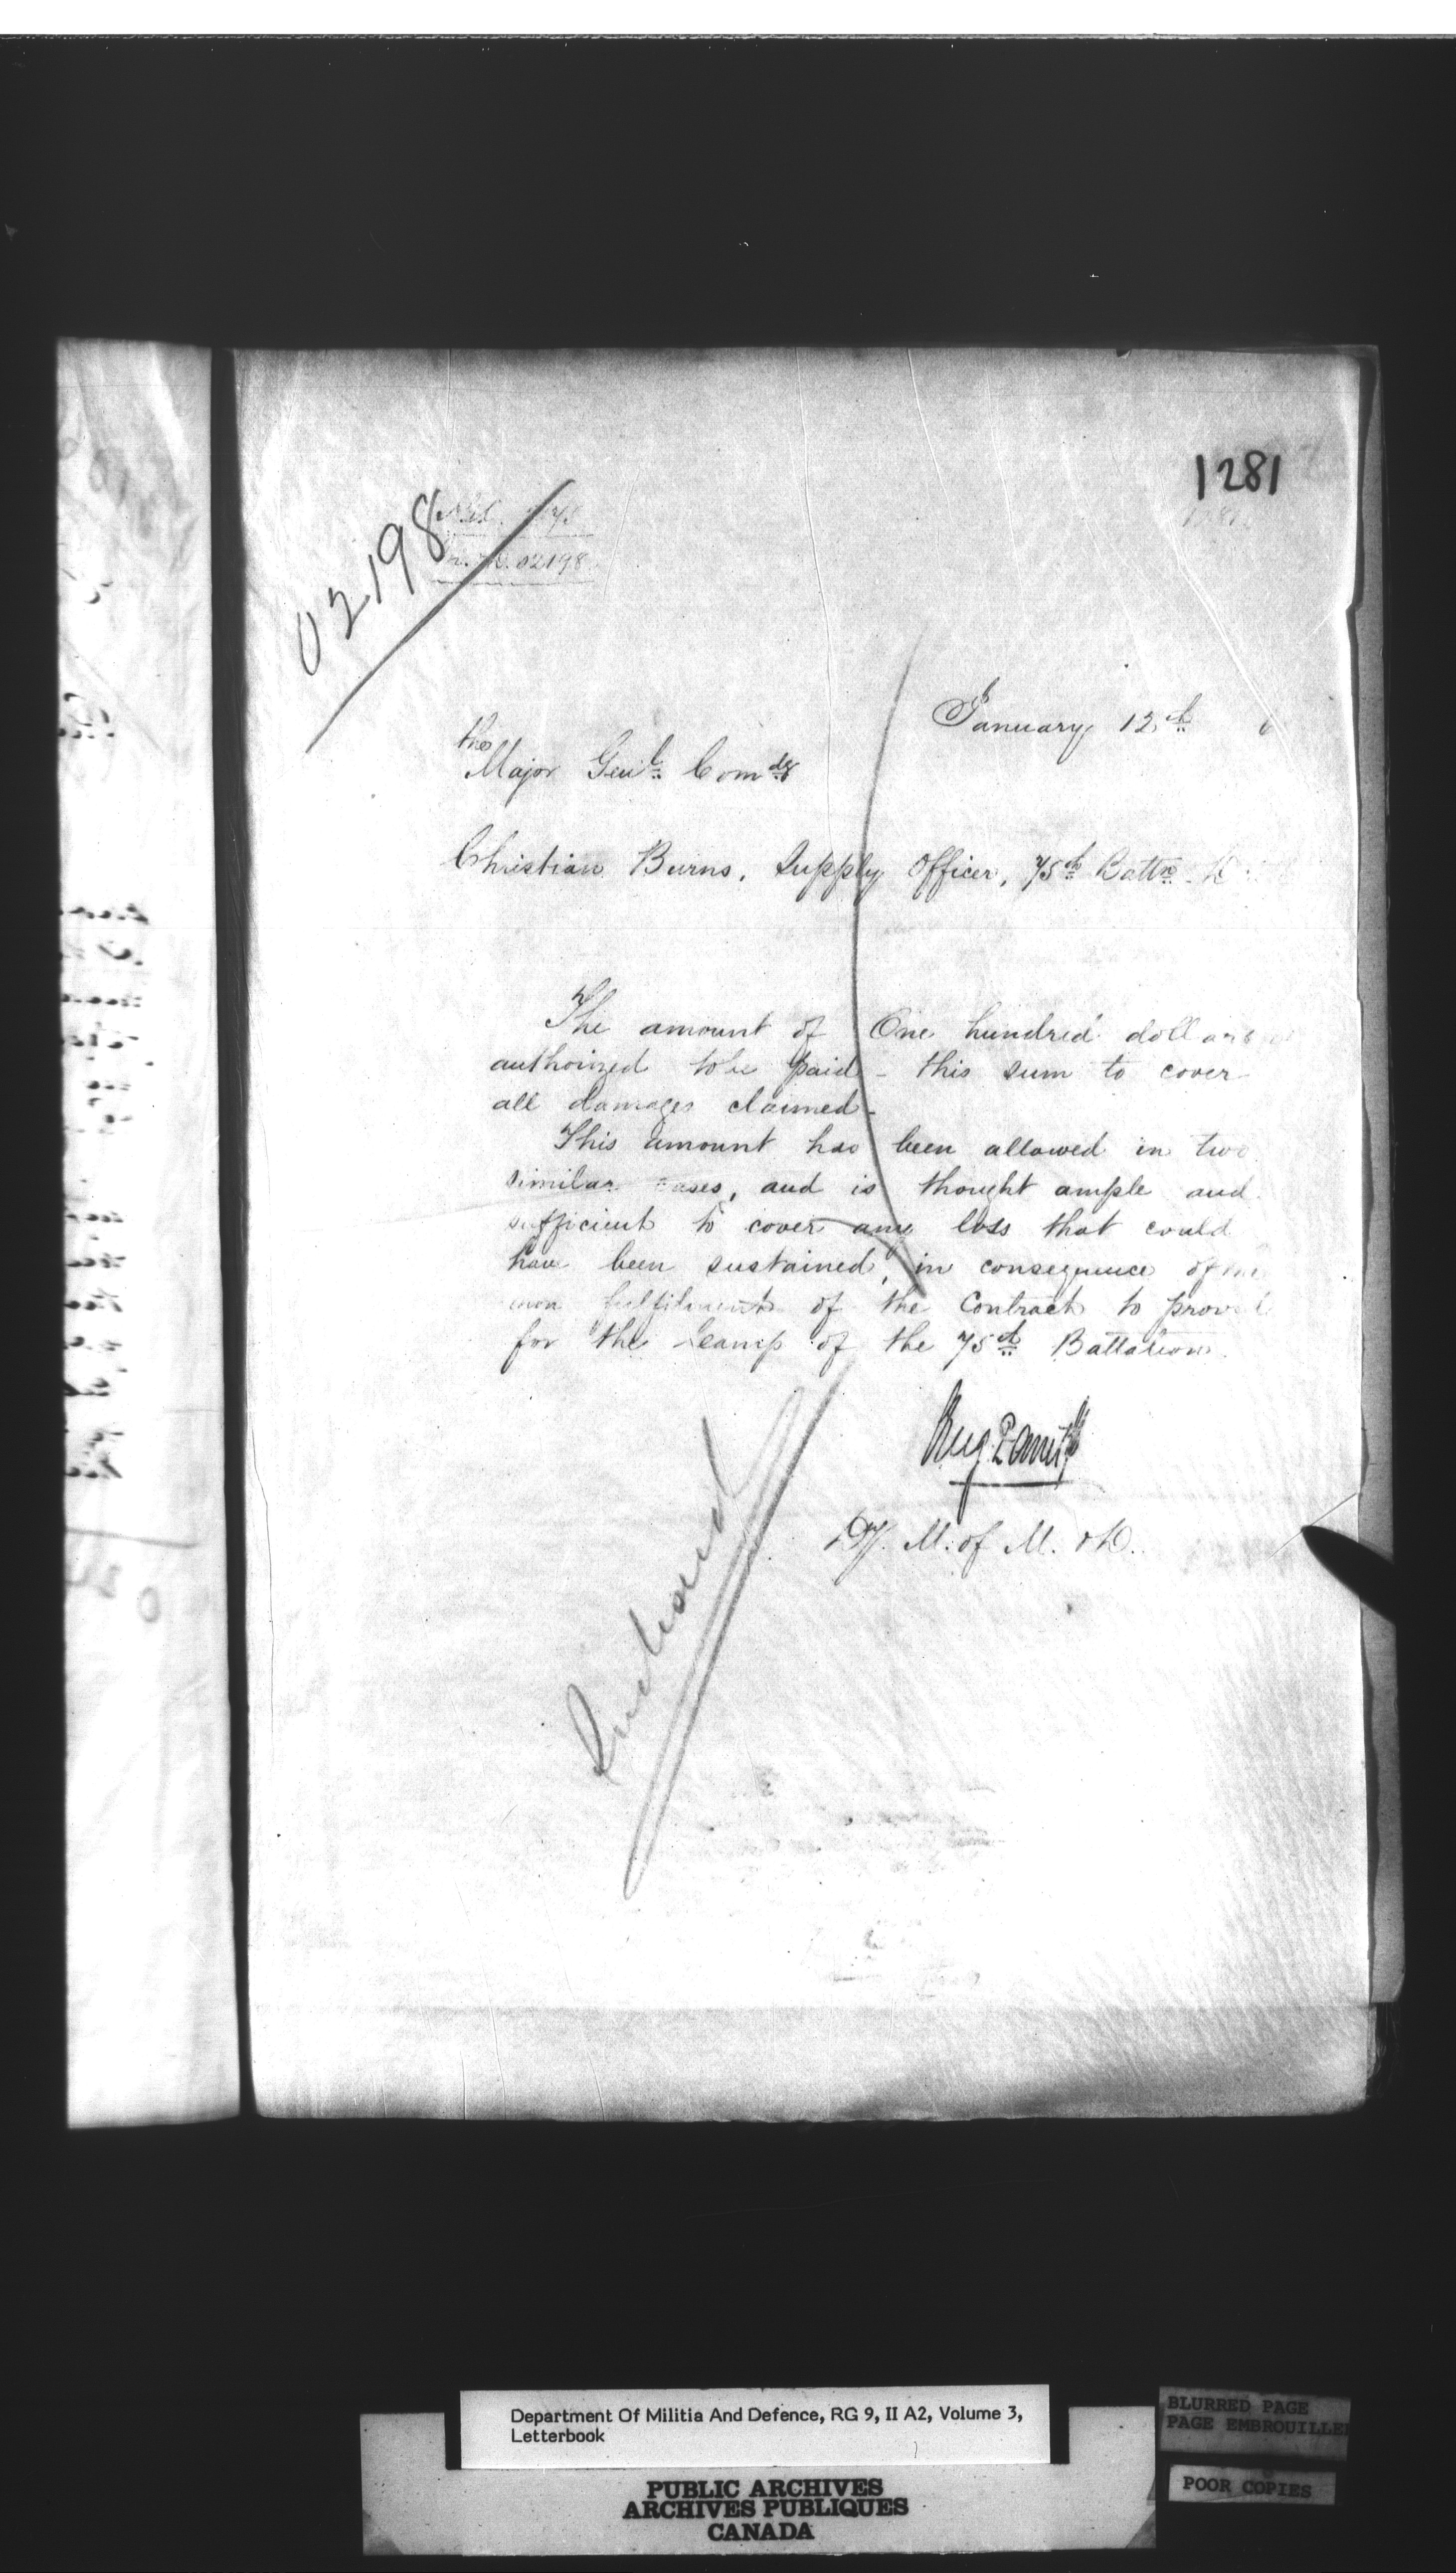 1281
02198
No. 02198
January 12th 6
The
Major Genl. Comdg
Christian Burns, Supply Officer, 75th Battn.
The amount of One hundred dollars
authorized to be paid - this sum to cover
all damages claimed -
This amount has been allowed in two
similar cases, and is thought ample and
sufficient to cover any loss that could
have been sustained, in consequence of the
non fulfilment of the Contract to provide
for the Camp of the 75th Battalion.
Dy. M. of M. & D.
Department Of Militia And Defence, RG 9, II A2, Volume 3,
Letterbook
BLURRED PAGE
PAGE EMBROUILLEE
POOR COPIES
PUBLIC ARCHIVES
ARCHIVES PUBLIQUES
CANADA